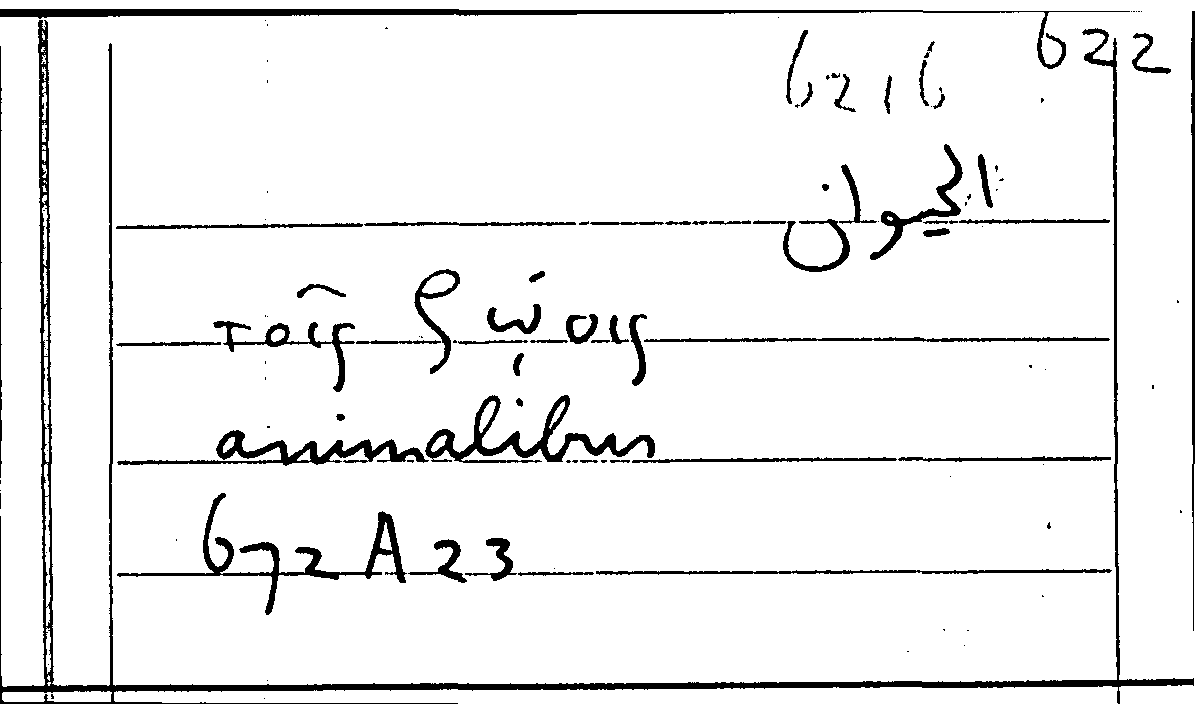 622
62,6
الحيوان
τοῖς ζῴοις
animalibus
672 A 23